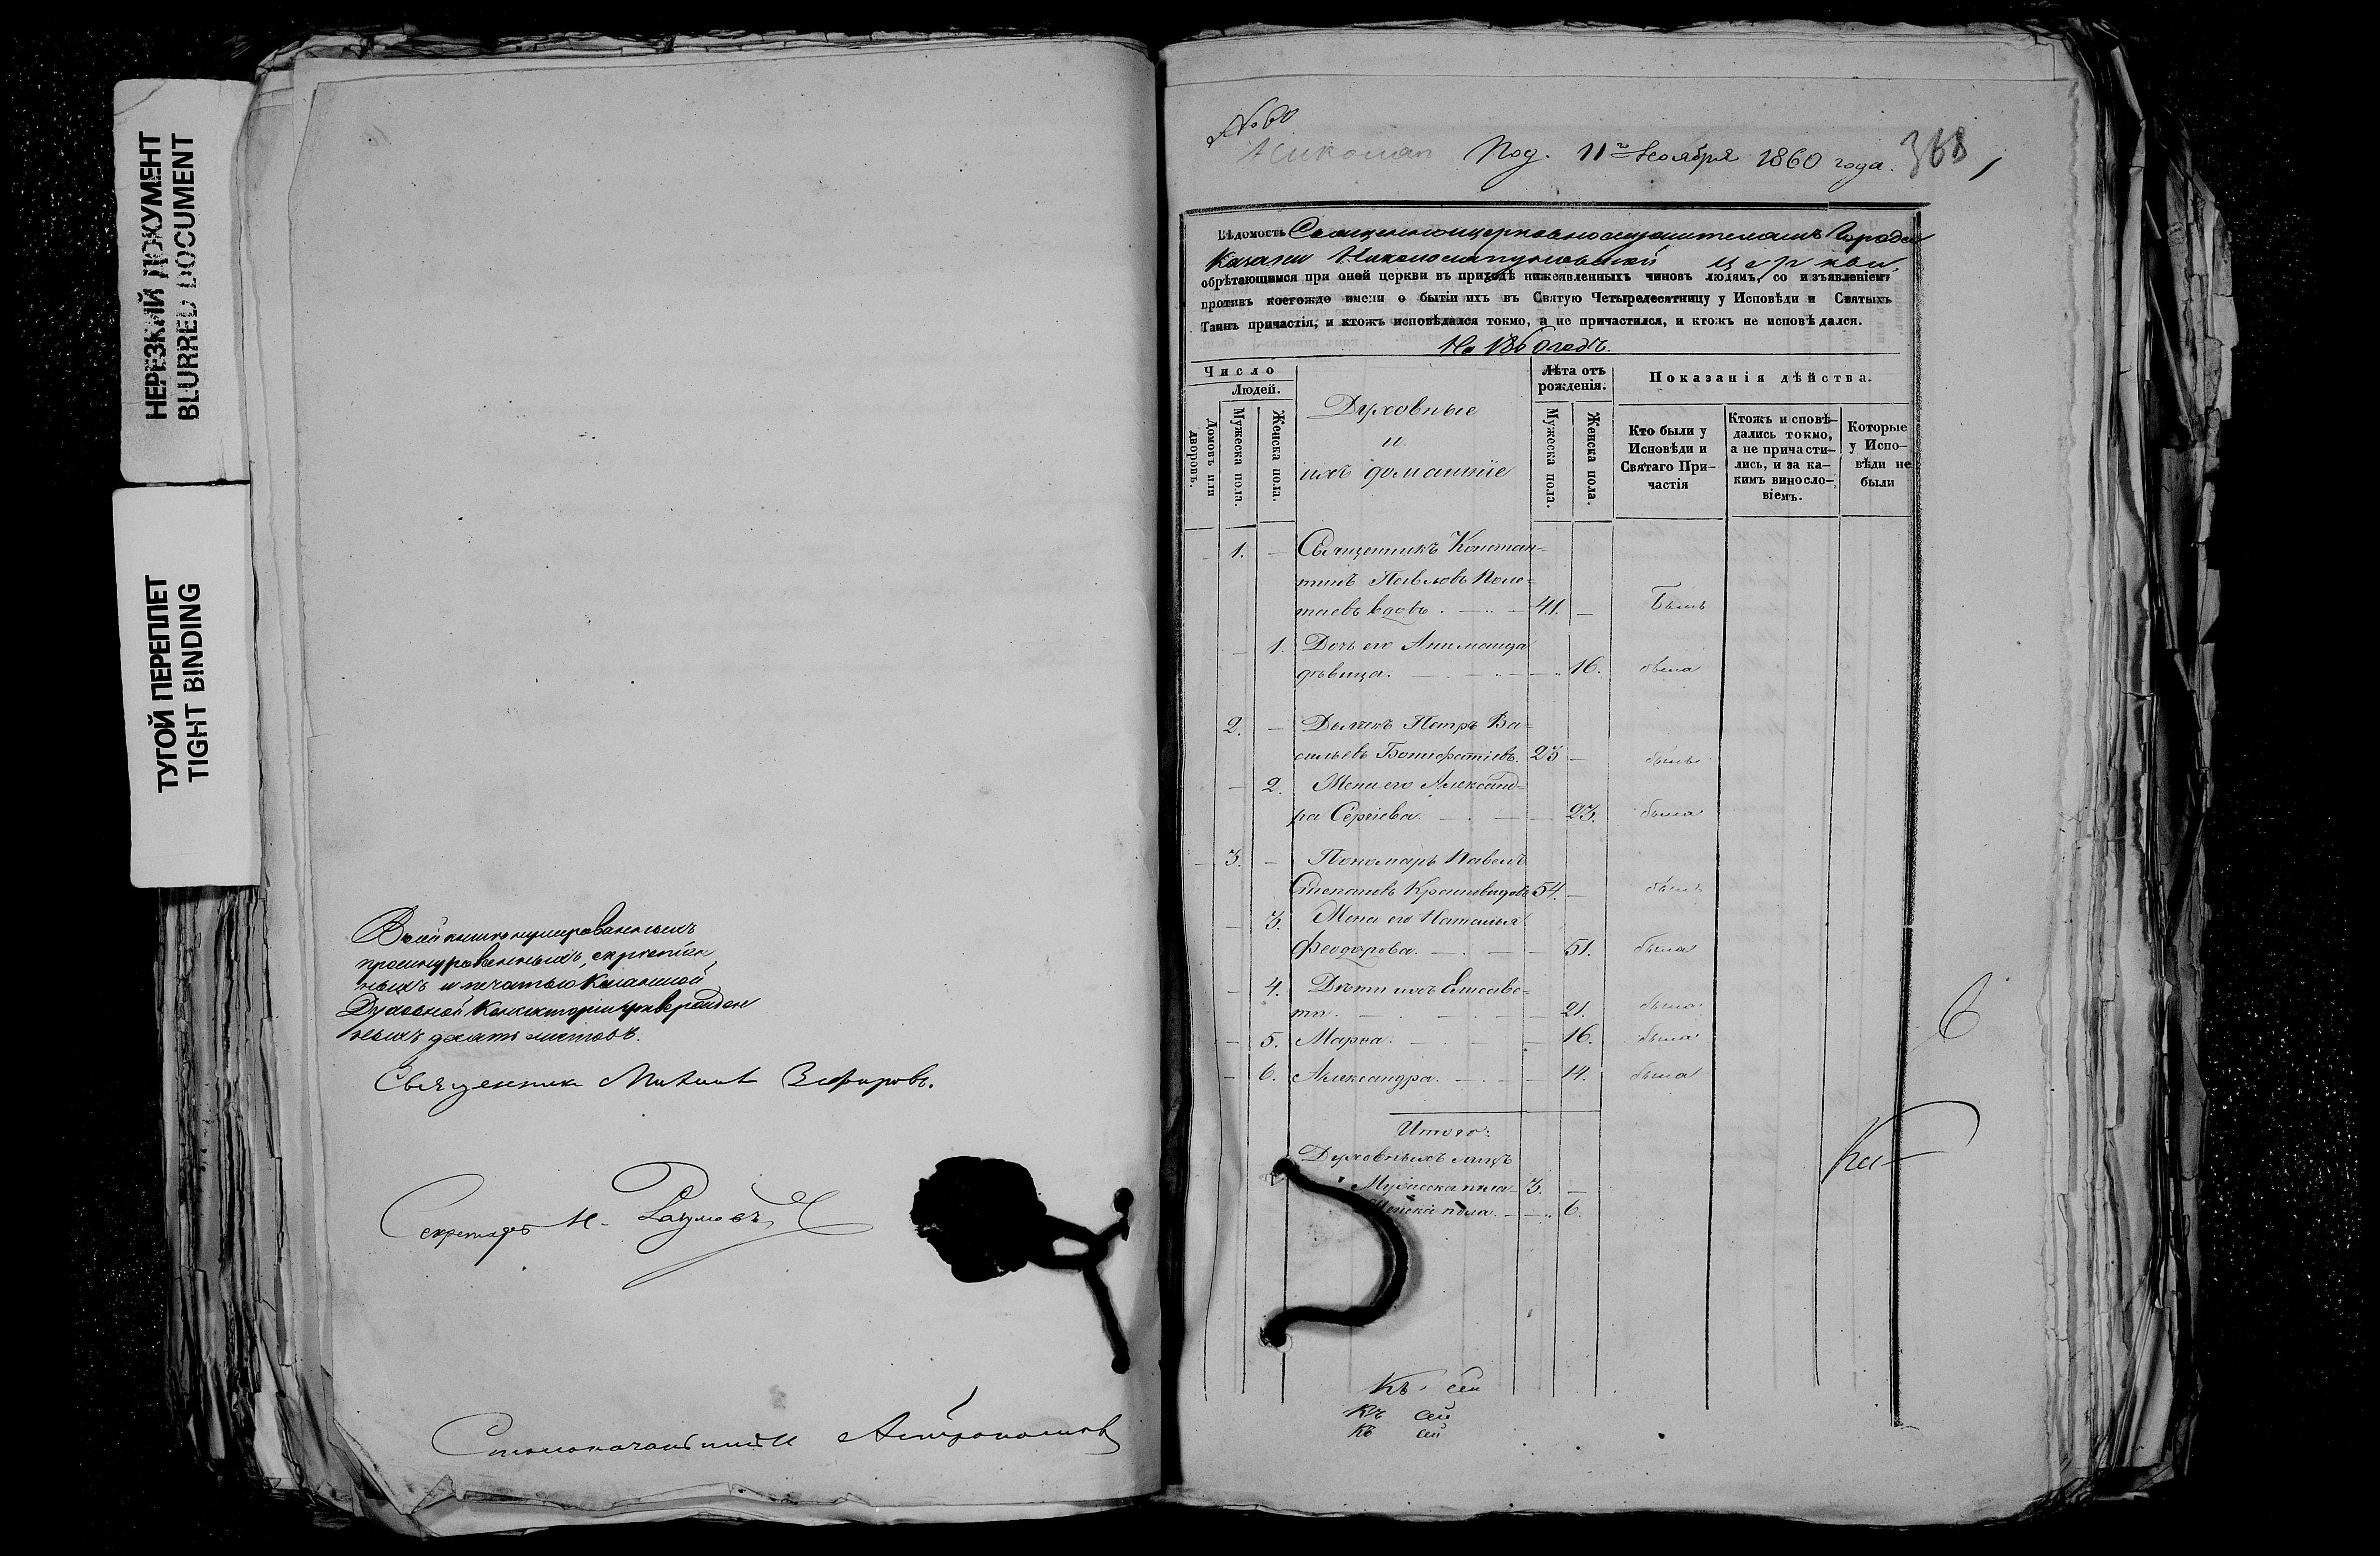 НЕРЕЗКИЙ ДОКУМЕНТ
BLURRED DOCUMENT
ТУГОЙ ПЕРЕПЛЕТ
TIGHT BINDING
Въ сей книгѣ нумерованныхъ
прошнурованныхъ, скрѣплен
ныхъ и печатью Казанской
Духовной Консисторіи утвержден
ныхъ десять листовъ.
Священникъ Михаилъ Зефировъ.
Секретарь Н. Разумовъ
Столоначальникъ
№ 60
Под. 11го Ноября 1860 года.
368
Вѣдомость Священноцерковнослужителямъ Города
Казани церкви,
обрѣтающимся при оной церкви въ приходѣ нижеявленныхъ чиновъ людямъ, со изъявленіемъ
противъ коегождо имени о бытіи ихъ въ Святую Четыредесятницу у Исповѣди и Святыхъ
Таинъ причастія, и ктожъ исповѣдался токмо, а не причастился, и ктожъ не исповѣдался.
На 1860 годъ.
Число
Людей.
Домовъ или дворовъ.
Мужеска пола.
Женска пола.
Духовные
и
ихъ домашніе
Лѣта отъ рожденія.
Мужеска пола.
Женска пола.
Показанія дѣйства.
Кто были у Исповѣди и Святаго При-частія
Ктожъ исповѣ-дались токмо, а не причасти-лись, и за ка-кимъ виносло-віемъ.
Которые у Испо-вѣди не были
1. — Священникъ Констан=
тинъ Павловъ Поле=
таевъ вдовъ. 41. — Былъ
1. Дочь его
дѣвица. 16. была
2. — Дьячекъ Петръ Ва=
сильевъ Бонифатіевъ. 23 — былъ
2. Жена его Александ=
ра Сергіева. 23. была
3. — Пономарь Павелъ
Степановъ Красновидовъ 54. — былъ
3. Жена его Наталья
Феодорова. 51. была
4. Дѣти ихъ Елисаве=
та. 21. была
5. Марѳа. 16. была
6. Александра. 14. была
Итого:
Духовныхъ лицъ
Мужеска пола 3. —
Женска пола. 6.
Къ сей
Къ сей
Къ сей